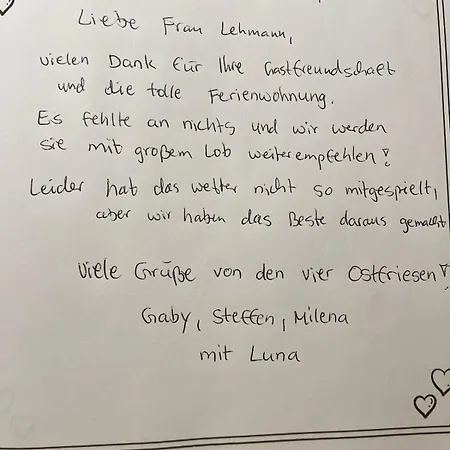 Liebe Frau Lehmann,
vielen Dank für Ihre Gastfreundschaft
und die tolle Ferienwohnung.
Es fehlte an nichts und wir werden
sie mit großem Lob weiterempfehlen!
Leider hat das wetter nicht so mitgespielt,
aber wir haben das Beste daraus gemacht
Viele Grüße von den vier Ostfriesen!
Gaby, Steffen, Milena
mit Luna